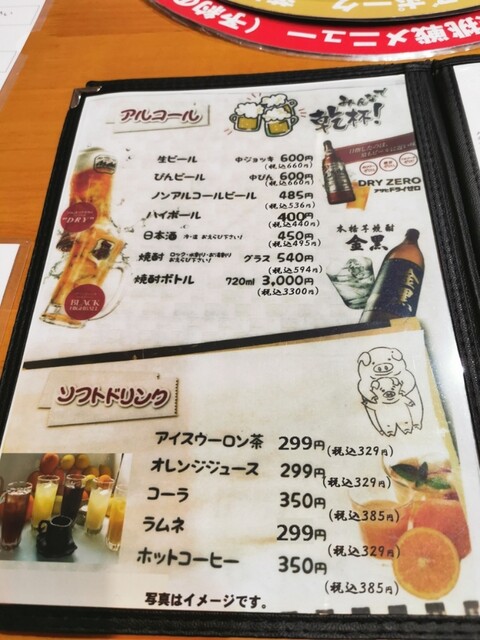 挑戦メニュー（予約の
アルコール
みんなで
乾杯!
生ビール 中ジョッキ 600円
(税込660円)
びんビール 中びん 600円
(税込660円)
ノンアルコールビール 485円
(税込536円)
ハイボール 400円
(税込440円)
日本酒 冷・温 お選び下さい! 450円
(税込495円)
焼酎 ロック・水割り・お湯割り お選び下さい! グラス 540円
(税込594円)
焼酎ボトル 720ml 3,000円
(税込3300円)
"DRY"
BLACK
HIGHBALL
DRY ZERO
アサヒドライゼロ
本格芋焼酎
金黒
ソフトドリンク
アイスウーロン茶 299円
(税込329円)
オレンジジュース 299円
(税込329円)
コーラ 350円
(税込385円)
ラムネ 299円
(税込329円)
ホットコーヒー 350円
(税込385円)
写真はイメージです。